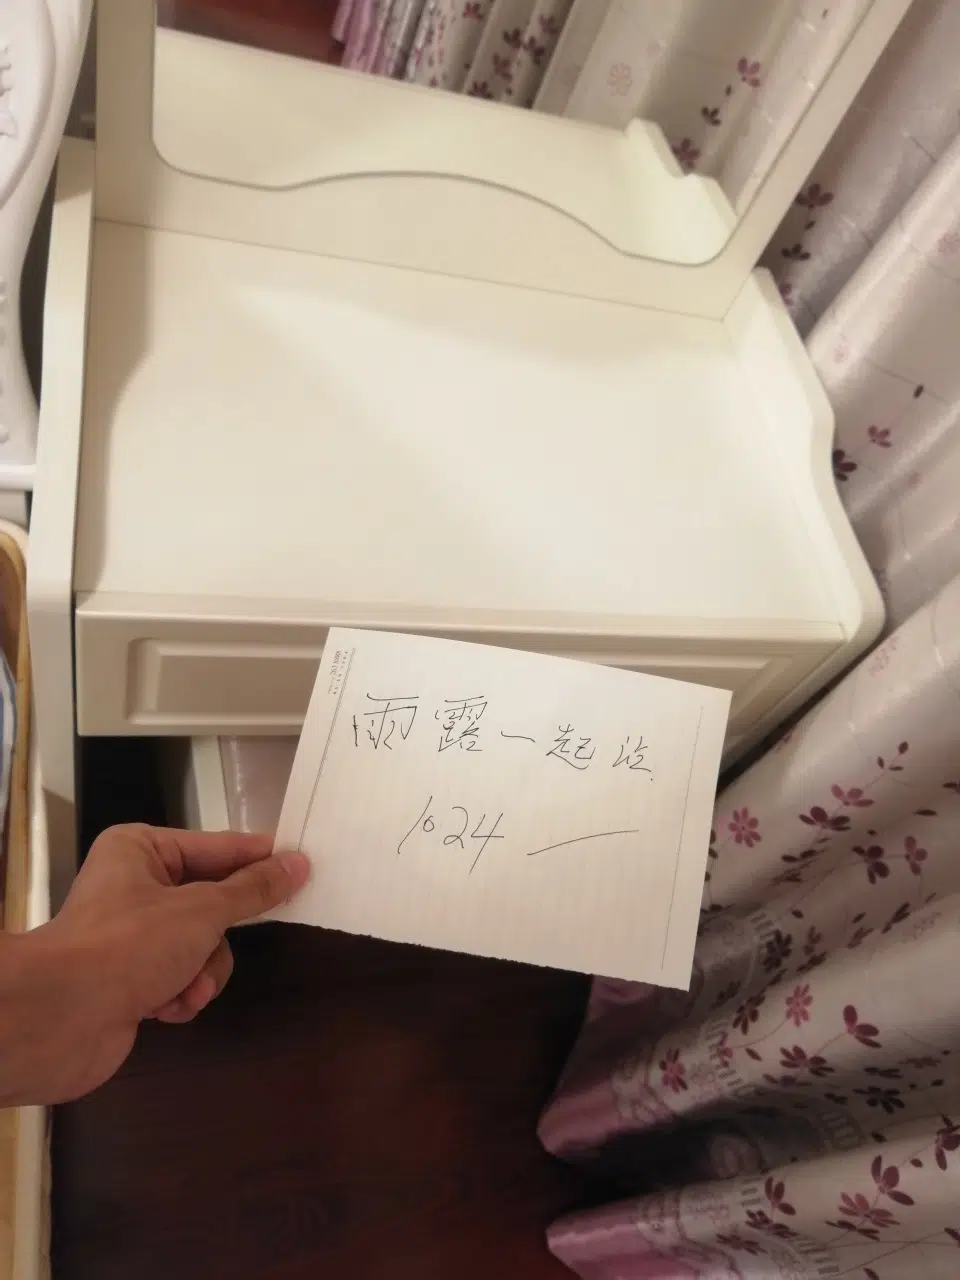 雨露一起沾
10.24